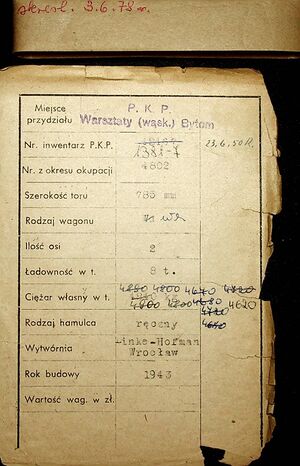 skreśl. 3.6.78 r.
Miejsce przydziału P. K. P.
Warsztaty (wąsk.) Bytom
Nr. inwentarz P.K.P. 1381-7 23.6.50 R.
Nr. z okresu okupacji 4802
Szerokość toru 785 mm
Rodzaj wagonu
Ilość osi 2
Ładowność w t. 8 t.
Ciężar własny w t. 4620
Rodzaj hamulca ręczny
Wytwórnia Linke-Hofman
Wrocław
Rok budowy 1943
Wartość wag. w zł.